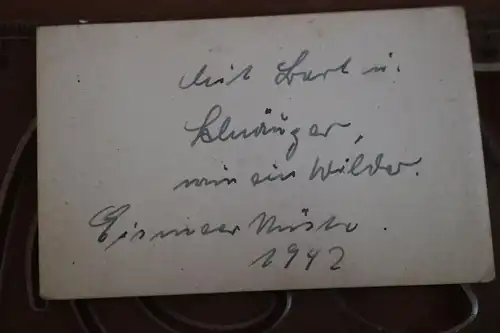 Mit Bart u.
wie ein Wilder.
Eismeer Küste.
1942